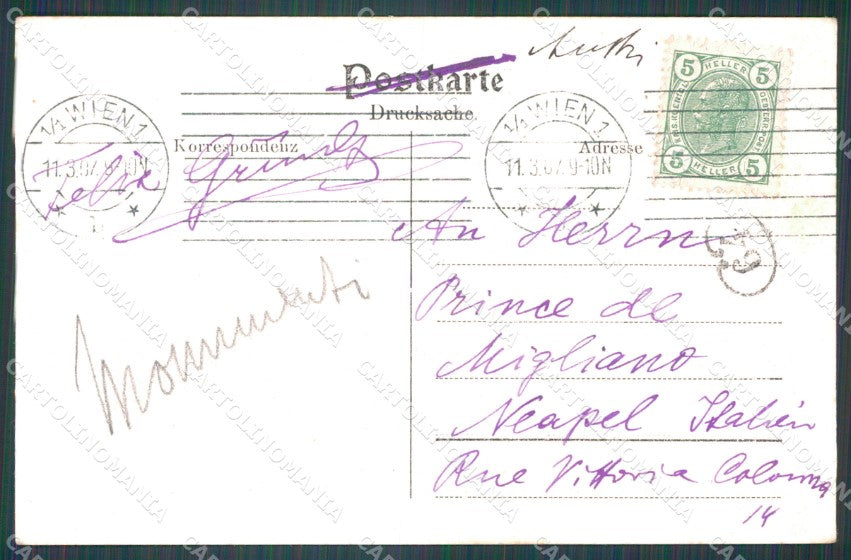 Postkarte
Drucksache
Korrespondenz
Adresse
1/1 WIEN 1
11.3.07.9-10N
1/1 WIEN 1
11.3.07.9-10N
5 HELLER 5
5 HELLER 5
Felix
An Herrn
Prince de
Migliano
Neapel Italien
Rue Vittoria Colonna
14
Monumenti
CARTOLINOMANIA